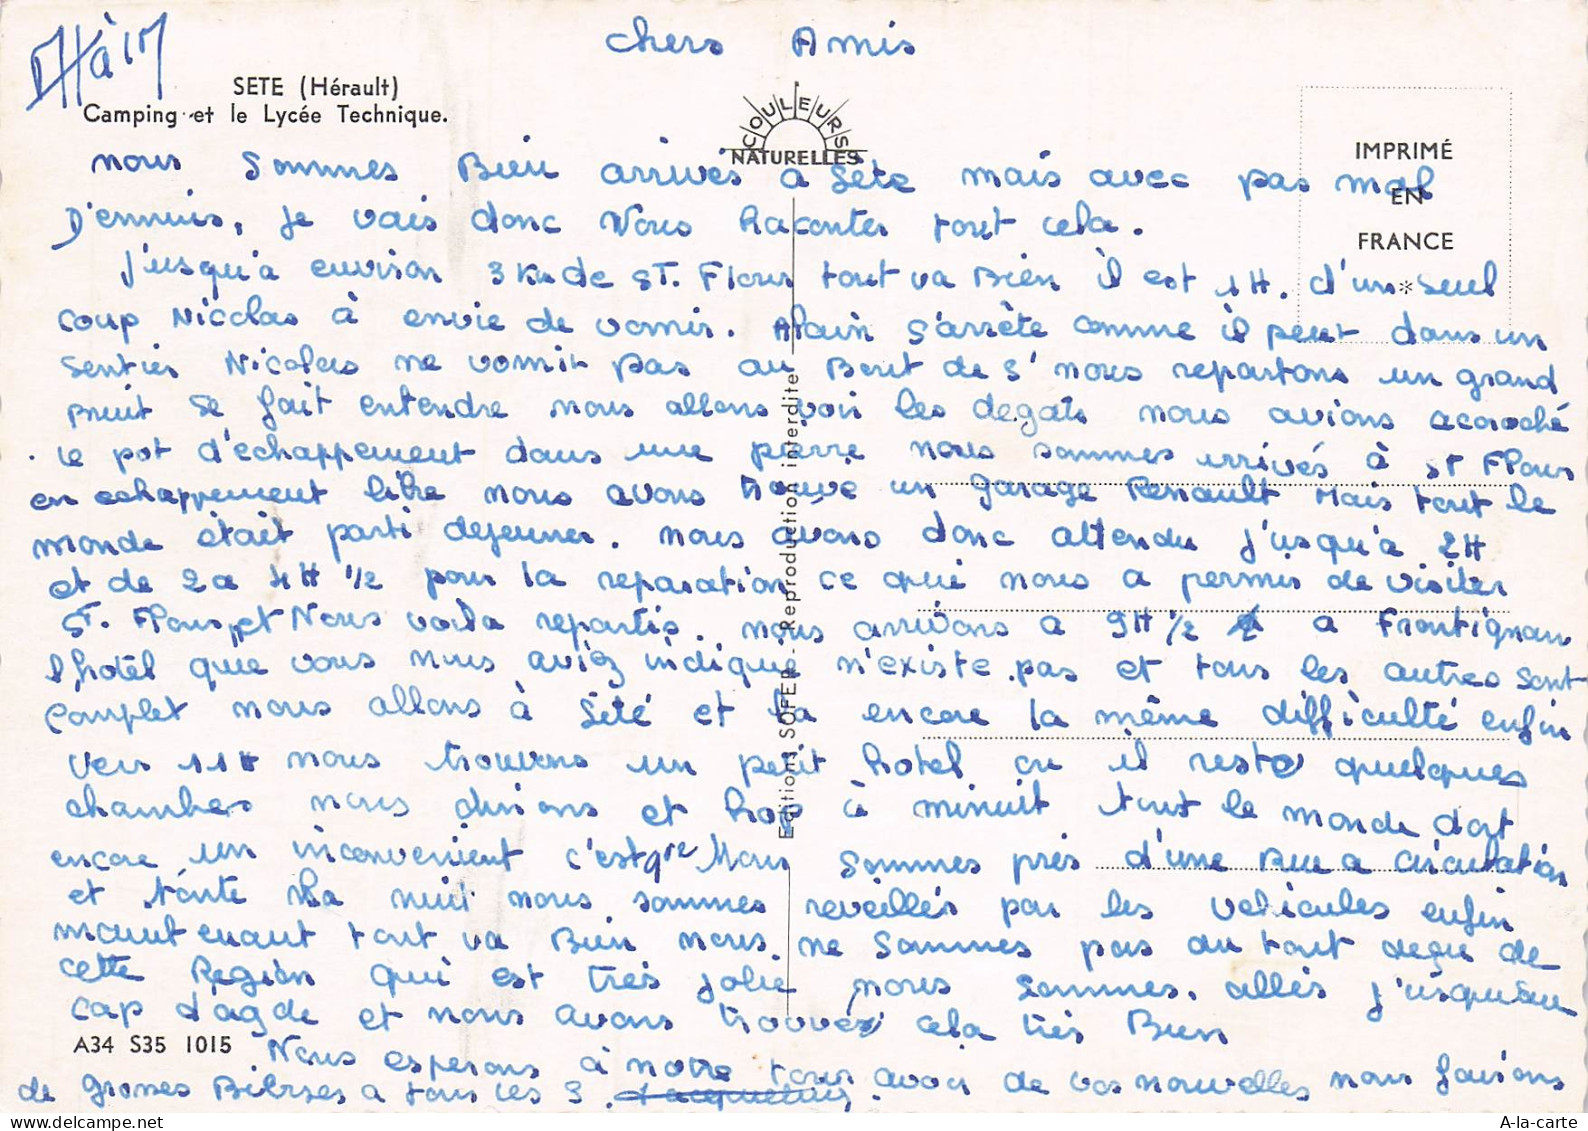 chers Amis
SETE (Hérault)
Camping et le Lycée Technique.
COULEURS
NATURELLES
IMPRIMÉ
EN
FRANCE
nous sommes Bien arrivés à Sète mais avec pas mal
D'ennuis, je vais donc Vous Raconter tout cela.
J'usqu'à environ 3 Km de ST. Flour tout va Bien il est 1H. d'un seul
coup Nicolas à envie de vomir. Alain s'arrète comme il peut dans un
sentier Nicolas ne vomit pas au Bout de 5' nous repartons un grand
Bruit se fait entendre nous allons voir les degats nous avions accroché
le pot d'échappement dans une pierre nous sommes arrivés à ST Flour
en echappement libre nous avons trouvé un garage Renault Mais tout le
monde était parti dejeuner. nous avons donc attendu J'usqu'à 2H
et de 2 a 4H 1/2 pour la reparation ce qui nous a permis de visiter
ST. Flour, et Nous voila repartis. nous arrivons a 9H 1/2 a Frontignan
l'hotel que vous nous aviez indique n'existe pas et tous les autres sont
complet nous allons à Sété et la encore la même difficulté enfin
vers 11H nous trouvons un petit hotel ou il reste quelques
chambres nous dinons et hop à minuit tout le monde dort
encore un inconvenient c'est que Nous sommes près d'une Rue a circulation
et toute la nuit nous sommes reveillés par les vehicules enfin
maintenant tout va Bien nous ne sommes pas du tout deçu de
cette Region qui est très jolie nous sommes allés j'usqu'au
cap d'agde et nous avons trouvés cela très Bien
Nous esperons à notre tour avoir de vos nouvelles nous faisons
de grosses Bierses a tous les 3.
A34 S35 1015
Editions SOFER - Reproduction interdite
A-la-carte